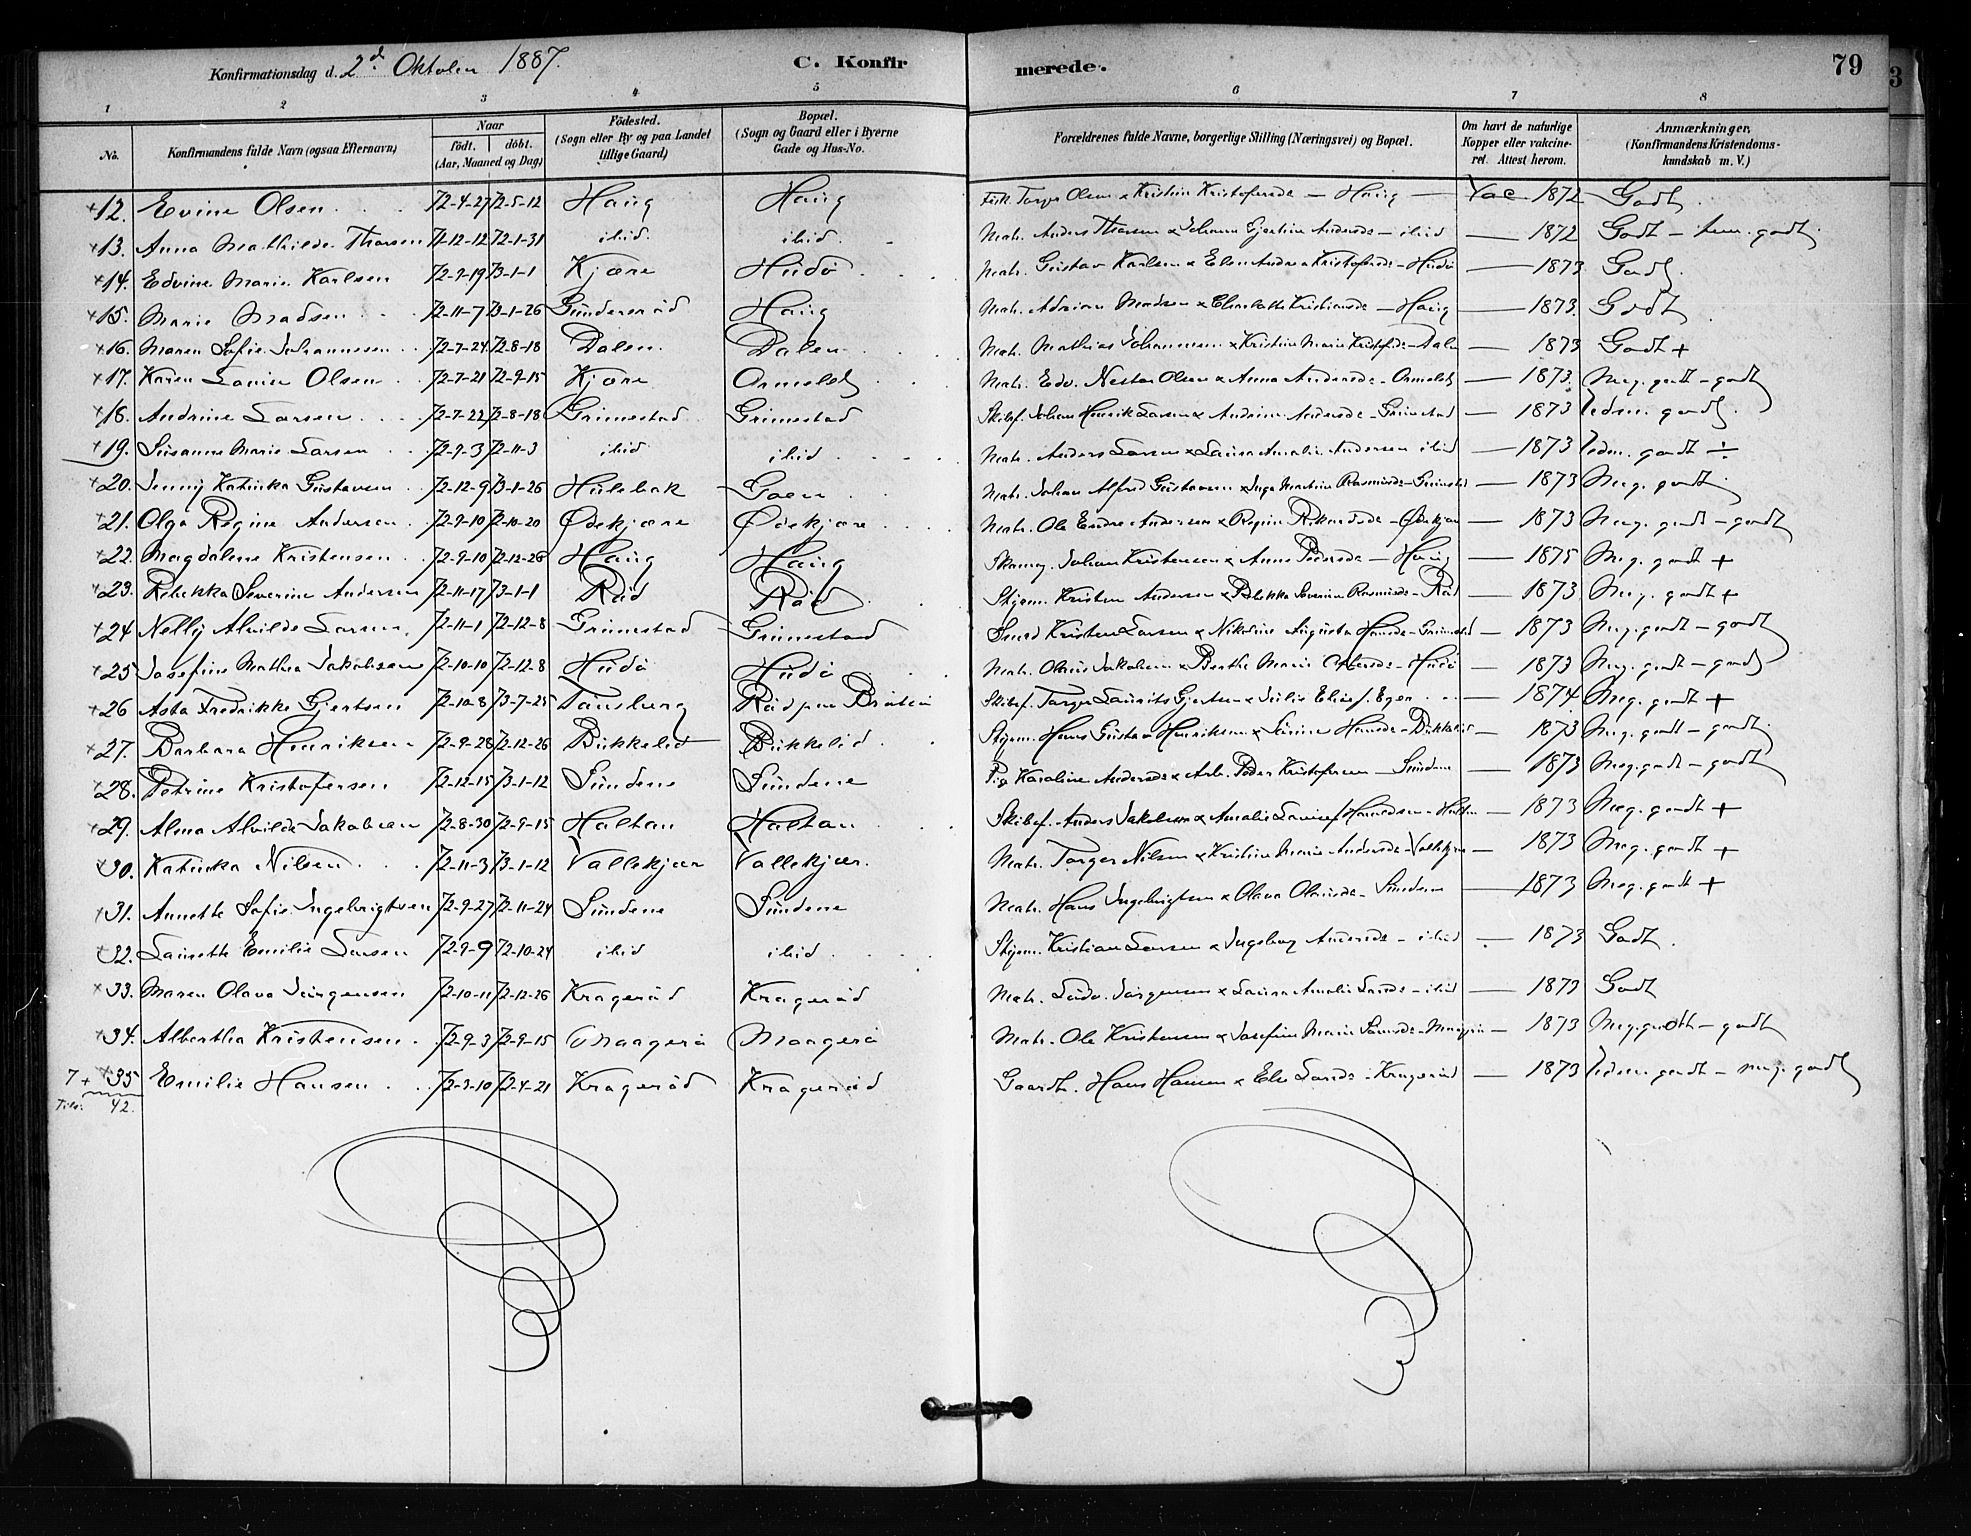 Konfirmationsdag d. 2d Oktober 1887. C. Konfirmerede. 79
1 2 3 4 5 6 7 8
No. Konfirmandens fulde Navn (ogsaa Efternavn) Naar födt. döbt. (Aar, Maaned og Dag) Födested. (Sogn eller By og paa Landet tillige Gaard) Bopæl. (Sogn og Gaard eller i Byerne Gade og Hus-No. Forældrenes fulde Navne, borgerlige Stilling (Næringsvei) og Bopæl. Om havt de naturlige Kopper eller vakcineret. Attest herom. Anmærkninger. (Konfirmandens Kristendomskundskab m. V.)
12. Evine Olsen 72-4-27 72-5-12 Haug Haug Torger Olsen x Kristine Kristofersd. – Haug – Vac 1872 Godt.
13. Anna Mathilde Thorsen 71-12-12 72-1-31 ibid. ibid. Matr. Anders Thorsen x Johanne Andersd. – ibid – 1872 Godt – godt
14. Edvine Marie Karlsen 72-9-19 73-1-1 Kjære Hudö Matr. Gustav Karlsen x Elen Andrea Kristofersd. – Hudö – 1873 Godt.
15. Marie Madsen 72-11-7 73-1-26 Gunderöd Haug Matr. Adrian Madsen x Elisabeth Kristiansd. – Haug – 1873 Godt
16. Maren Sofie Johannesen 72-7-24 72-8-18 Dalen Dalen Matr. Mathias Johannesen x Kristine Marie Kristofersd. – Dalen 1873 Godt +
17. Karen Lovise Olsen 72-7-21 72-9-15 Kjære Ormelet Matr. Edv. Nestor Olsen x Anna Andersd. – Ormelet – 1873. Meg. godt – godt
18. Andrine Larsen 72-7-22 72-8-18 Grimestad Grimestad Skibsf. Johan Henrik Larsen x Andrine Andersd. – Grimestad – 1873 godt.
19. Susanne Marie Larsen 72-9-3 72-11-3 ibid ibid. Matr. Anders Larsen x Laura Amalie Andersen ibid – 1873 godt ÷
20. Jenny Katinka Gustavsen 72-12-9 73-1-26 Hulebak Goen Matr. Johan Alfred Gustavsen x Inga Martine Rasmusd. – 1873 Meg. godt
21. Olga Regine Andersen 72-9-10 72-10-20 Ödekjære Ödekjære Matr. Ole Andersen x Regine – Ödekjær – 1873 Meg. godt – godt
22. Magdalene Kristensen 72-9-10 72-12-26 Haug Haug Skomag. Johan Kristensen x Anne Pedersd. – Haug – 1875 Meg. godt +
23. Rebekka Severine Andersen 72-11-17 73-1-1 Röd Röd Styrm. Kristen Andersen x Rebekka Severine Rasmusd. – Röd – 1873 Meg. godt +
24 Nelly Alvilde Larsen 72-11-1 72-12-8 Grimestad Grimestad Smed Kristen Larsen x Nikoline Augusta Hansd. – Grimestad – 1873 Meg. godt – godt
25 Josefine Mathea Jakobsen 72-10-10 72-12-8 Hudö Hudö Matr. Jakobsen x Berthe Marie – Hudö – 1873 Meg. godt – godt
26 Asta Fredrikke Gjertsen 72-10-8 73-7-25 Tönsberg Röd Skibsf. Torger Laurits Gjertsen x Julie – 1874 Meg. godt +
27. Barbara Henriksen 72-9-28 72-12-26 Bukkelid Bukkelid. Styrm. Hans Gustav Henriksen x Hansd. – Bukkelid – 1873 Meg. godt – godt
28. Petrine Kristofersen 72-12-15 73-1-12 Sundene Sundene Pig. Karoline Andersd. x Arb. Peder Kristofersen – Sundene – 1873 Meg. godt – godt
29. Alma Alvilde Jakobsen 72-8-30 72-9-15 Holtan Holtan Skibsf. Anders Jakobsen x Amalie – 1873 Meg. godt +
30. Katinka Nilsen 72-11-3 73-1-12 Vallekjær Vallekjær. Matr. Torger Nilsen x Kristine Marie Andersd. – Vallekjær – 1873 Meg. godt +
31. Annette Sofie Ingebrigtsen 72-9-27 72-11-24 Sundene Sundene Matr. Hans Ingebrigtsen x Olava – Sundene – 1873 Meg. godt +
32. Laurette Emilie Larsen 72-9-9 72-10-24 ibid ibid. Styrm. Kristian Larsen x Ingeborg Andersd. – ibid – 1873 Godt.
33. Maren Olava Jörgensen 72-10-11 72-12-26 Krageröd Krageröd Matr. Ludv. Jörgensen x Laura Amalie Larsd. – ibid – 1873 Godt
34. Alberthea Kristensen 72-9-3 72-9-15 Maagerö Maagerö Matr. Ole Kristensen x Josefine Marie – Maagerö – 1873 Meg. godt – godt
7 + 35 Emilie Hansen 72-3-10 72-4-21 Krageröd Krageröd Gaardb. Hans Hansen x Larsd. – Krageröd – 1873 godt – meg. godt
Tils. 42.